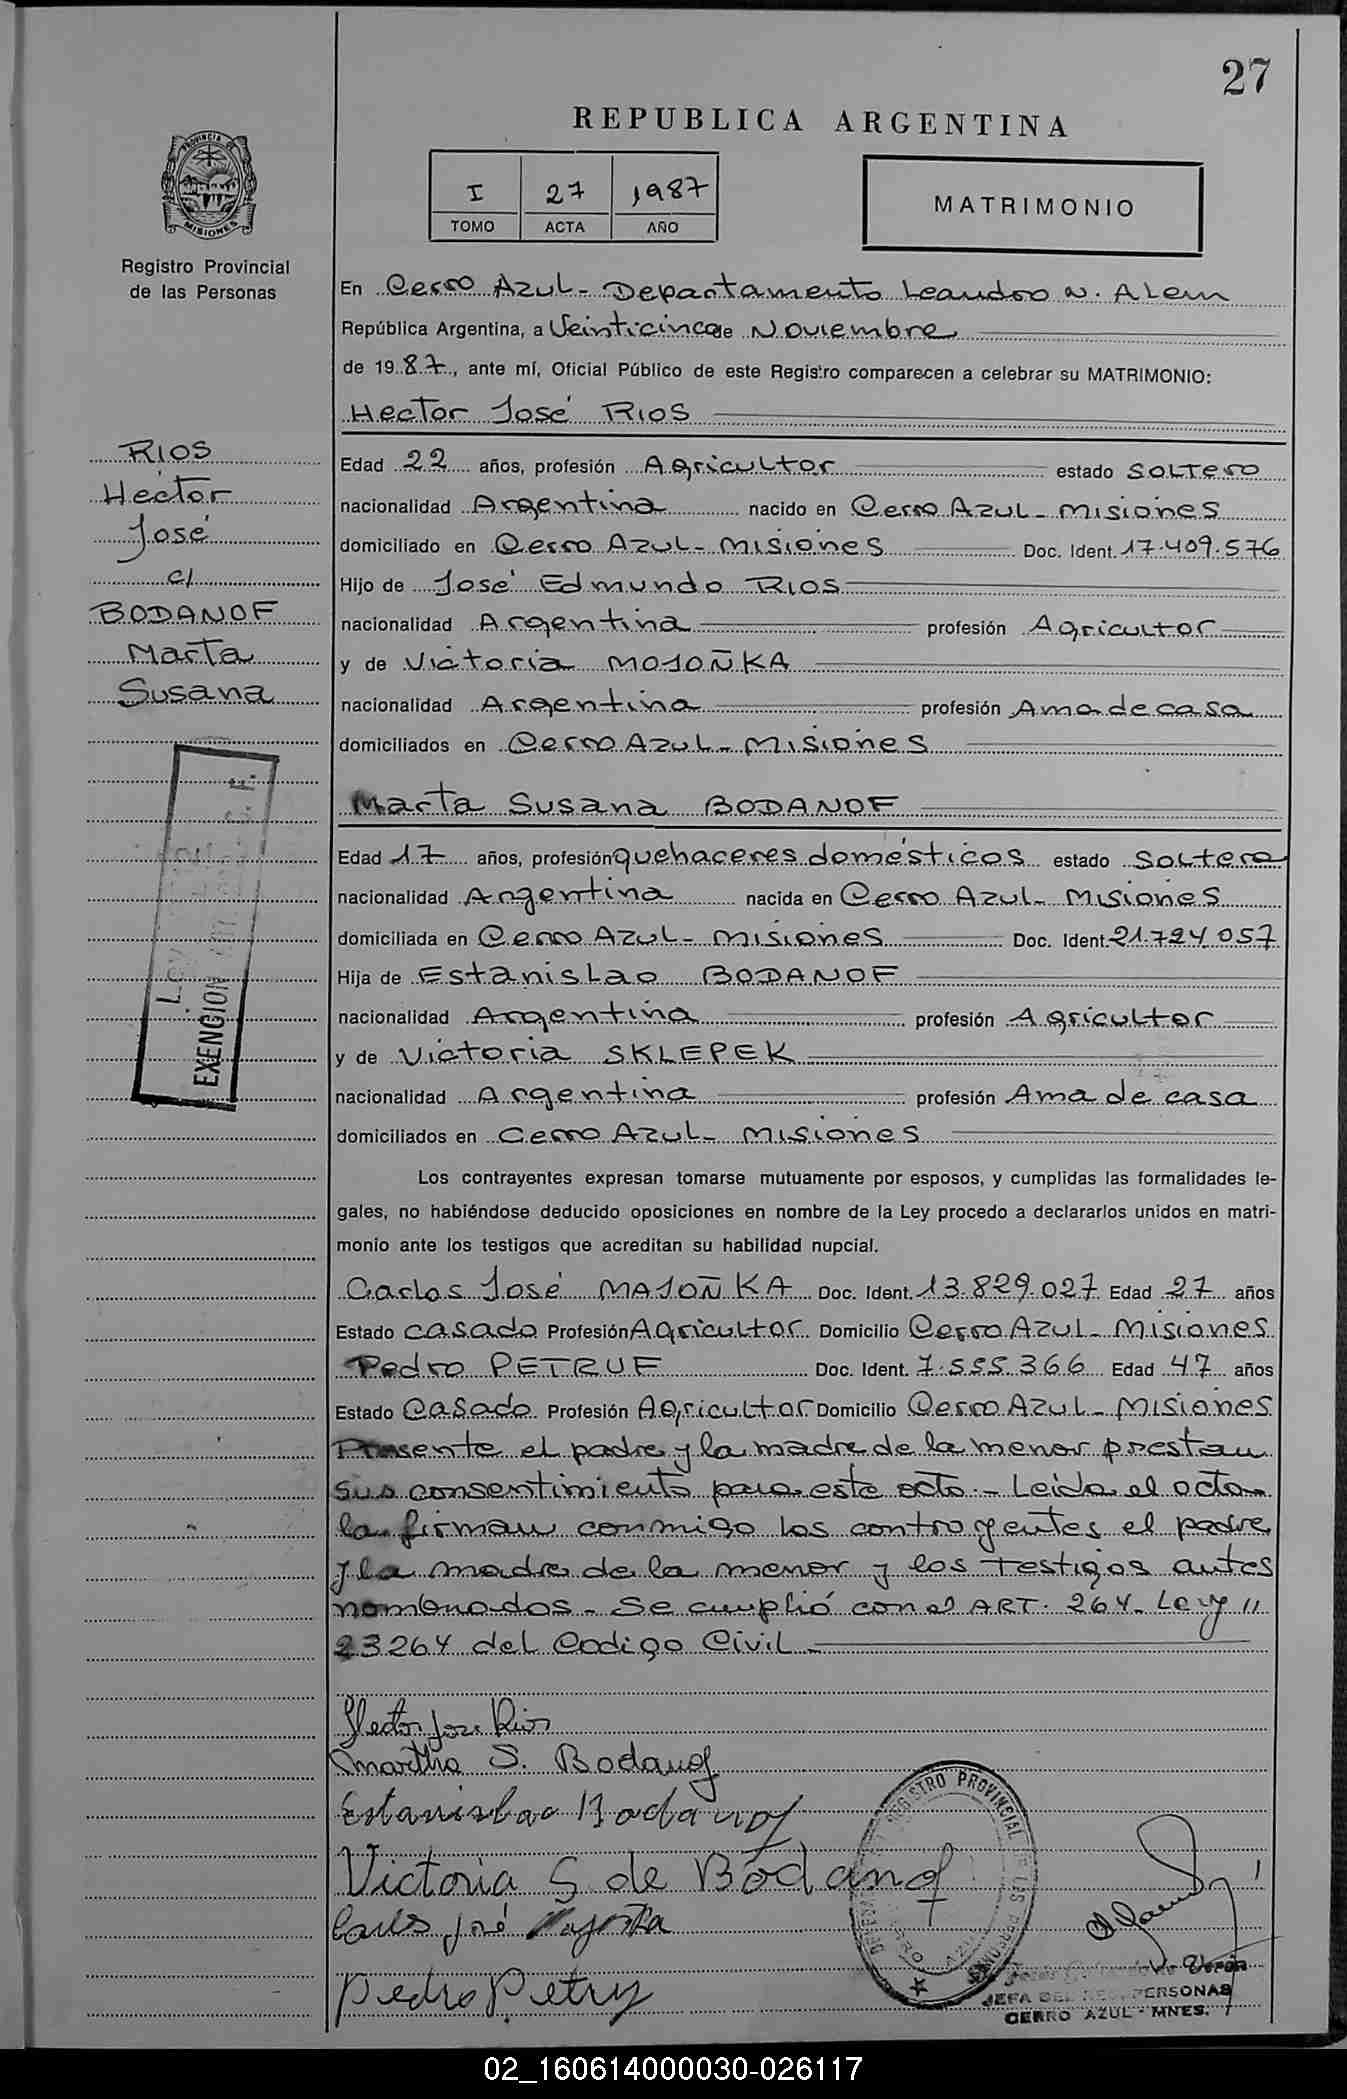 27
REPUBLICA ARGENTINA
I 27 1987
TOMO ACTA AÑO
MATRIMONIO
PROVINCIA DE MISIONES
Registro Provincial
de las Personas
En Cerro Azul - Departamento Leandro N. Alem
República Argentina, a Veinticinco de Noviembre
de 1987, ante mí, Oficial Público de este Registro comparecen a celebrar su MATRIMONIO:
Hector José RIOS
RIOS
Hector
José
c/
BODANOF
Marta
Susana
Edad 22 años, profesión Agricultor estado soltero
nacionalidad Argentina nacido en Cerro Azul - Misiones
domiciliado en Cerro Azul - Misiones Doc. Ident. 17.409.576
Hijo de José Edmundo RIOS
nacionalidad Argentina profesión Agricultor
y de Victoria MOJOÑKA
nacionalidad Argentina profesión Ama de casa
domiciliados en Cerro Azul - Misiones
Marta Susana BODANOF
Edad 17 años, profesión quehaceres domésticos estado soltera
nacionalidad Argentina nacida en Cerro Azul - Misiones
domiciliada en Cerro Azul - Misiones Doc. Ident. 21.724.057
Hija de Estanislao BODANOF
nacionalidad Argentina profesión Agricultor
y de Victoria SKLEPEK
nacionalidad Argentina profesión Ama de casa
domiciliados en Cerro Azul - Misiones
EXENCION
Los contrayentes expresan tomarse mutuamente por esposos, y cumplidas las formalidades le-
gales, no habiéndose deducido oposiciones en nombre de la Ley procedo a declararlos unidos en matri-
monio ante los testigos que acreditan su habilidad nupcial.
Carlos José MAJOÑKA Doc. Ident. 13.829.027 Edad 27 años
Estado casado Profesión Agricultor Domicilio Cerro Azul - Misiones
Pedro PETRUF Doc. Ident. 7.555.366 Edad 47 años
Estado Casado Profesión Agricultor Domicilio Cerro Azul - Misiones
Presente el padre y la madre de la menor prestan
sus consentimiento para este acto - Leida el acta
la firman conmigo los contrayentes el padre
y la madre de la menor y los testigos antes
nombrados - Se cumplió con el ART. 264 - Ley "
23264 del Codigo Civil -
Hector Jose Rios
Martha S. Bodanof
Estanislao Bodanof
Victoria S de Bodanof
Carlos José
Pedro Petruf
REGISTRO PROVINCIAL DE LAS PERSONAS
CERRO AZUL
de Verón
JEFA DEL REG. PERSONAS
CERRO AZUL - MNES.
02_160614000030-026117